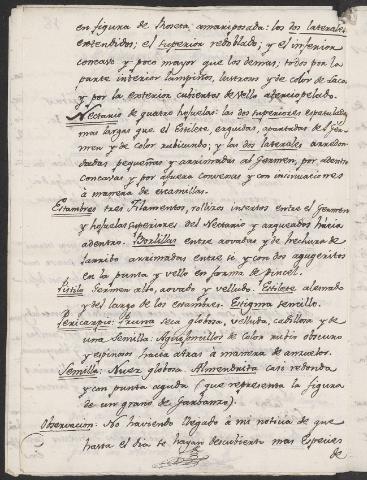 en figura de Roseta amariposada: los dos laterales
extendidos; el superior redoblado; y el inferior
concavo y poco mayor que los demas; todos por la
parte interior lampiños, lustrosos y de color de Laca
y por la exterior cubiertos de Vello aterciopelado.
Nectario de quatro hojuelas: las dos superiores espatuladas
mas largas que el Estilete, erguidas, apartadas del Ger-
men y de color rubicundo; y las dos laterales arredon-
deadas pequeñas y arrimadas al Germen, por adentro
concavas y por afuera convexas y con insinuaciones
à manera de escamillas.
Estambres tres Filamentos, rollizos insertos entre el Germen
y hojuelas superiores del Nectario y arqueados hácia
adentro. Borlillas entre aovadas y de hechura de
arrimadas entre si y con dos agugeritos
en la punta y vello en forma de pincel.
Pistilo Germen alto, aovado y velludo. Estilete alesnado
y del largo de los estambres. Estigma sencillo.
Pericarpio: Pruna seca globosa, velluda, cabillosa y de
una Semilla: Aguijoncillos de color rubio obscuro
y espinosos hácia atras à manera de anzuelos.
Semilla: Nuez globosa. Almendrita casi redonda
y con punta aguda (que representa la figura
de un grano de Garbanzo).
Observacion: No haviendo llegado à mi noticia de que
hasta el dia se hayan descubierto mas Especies
de